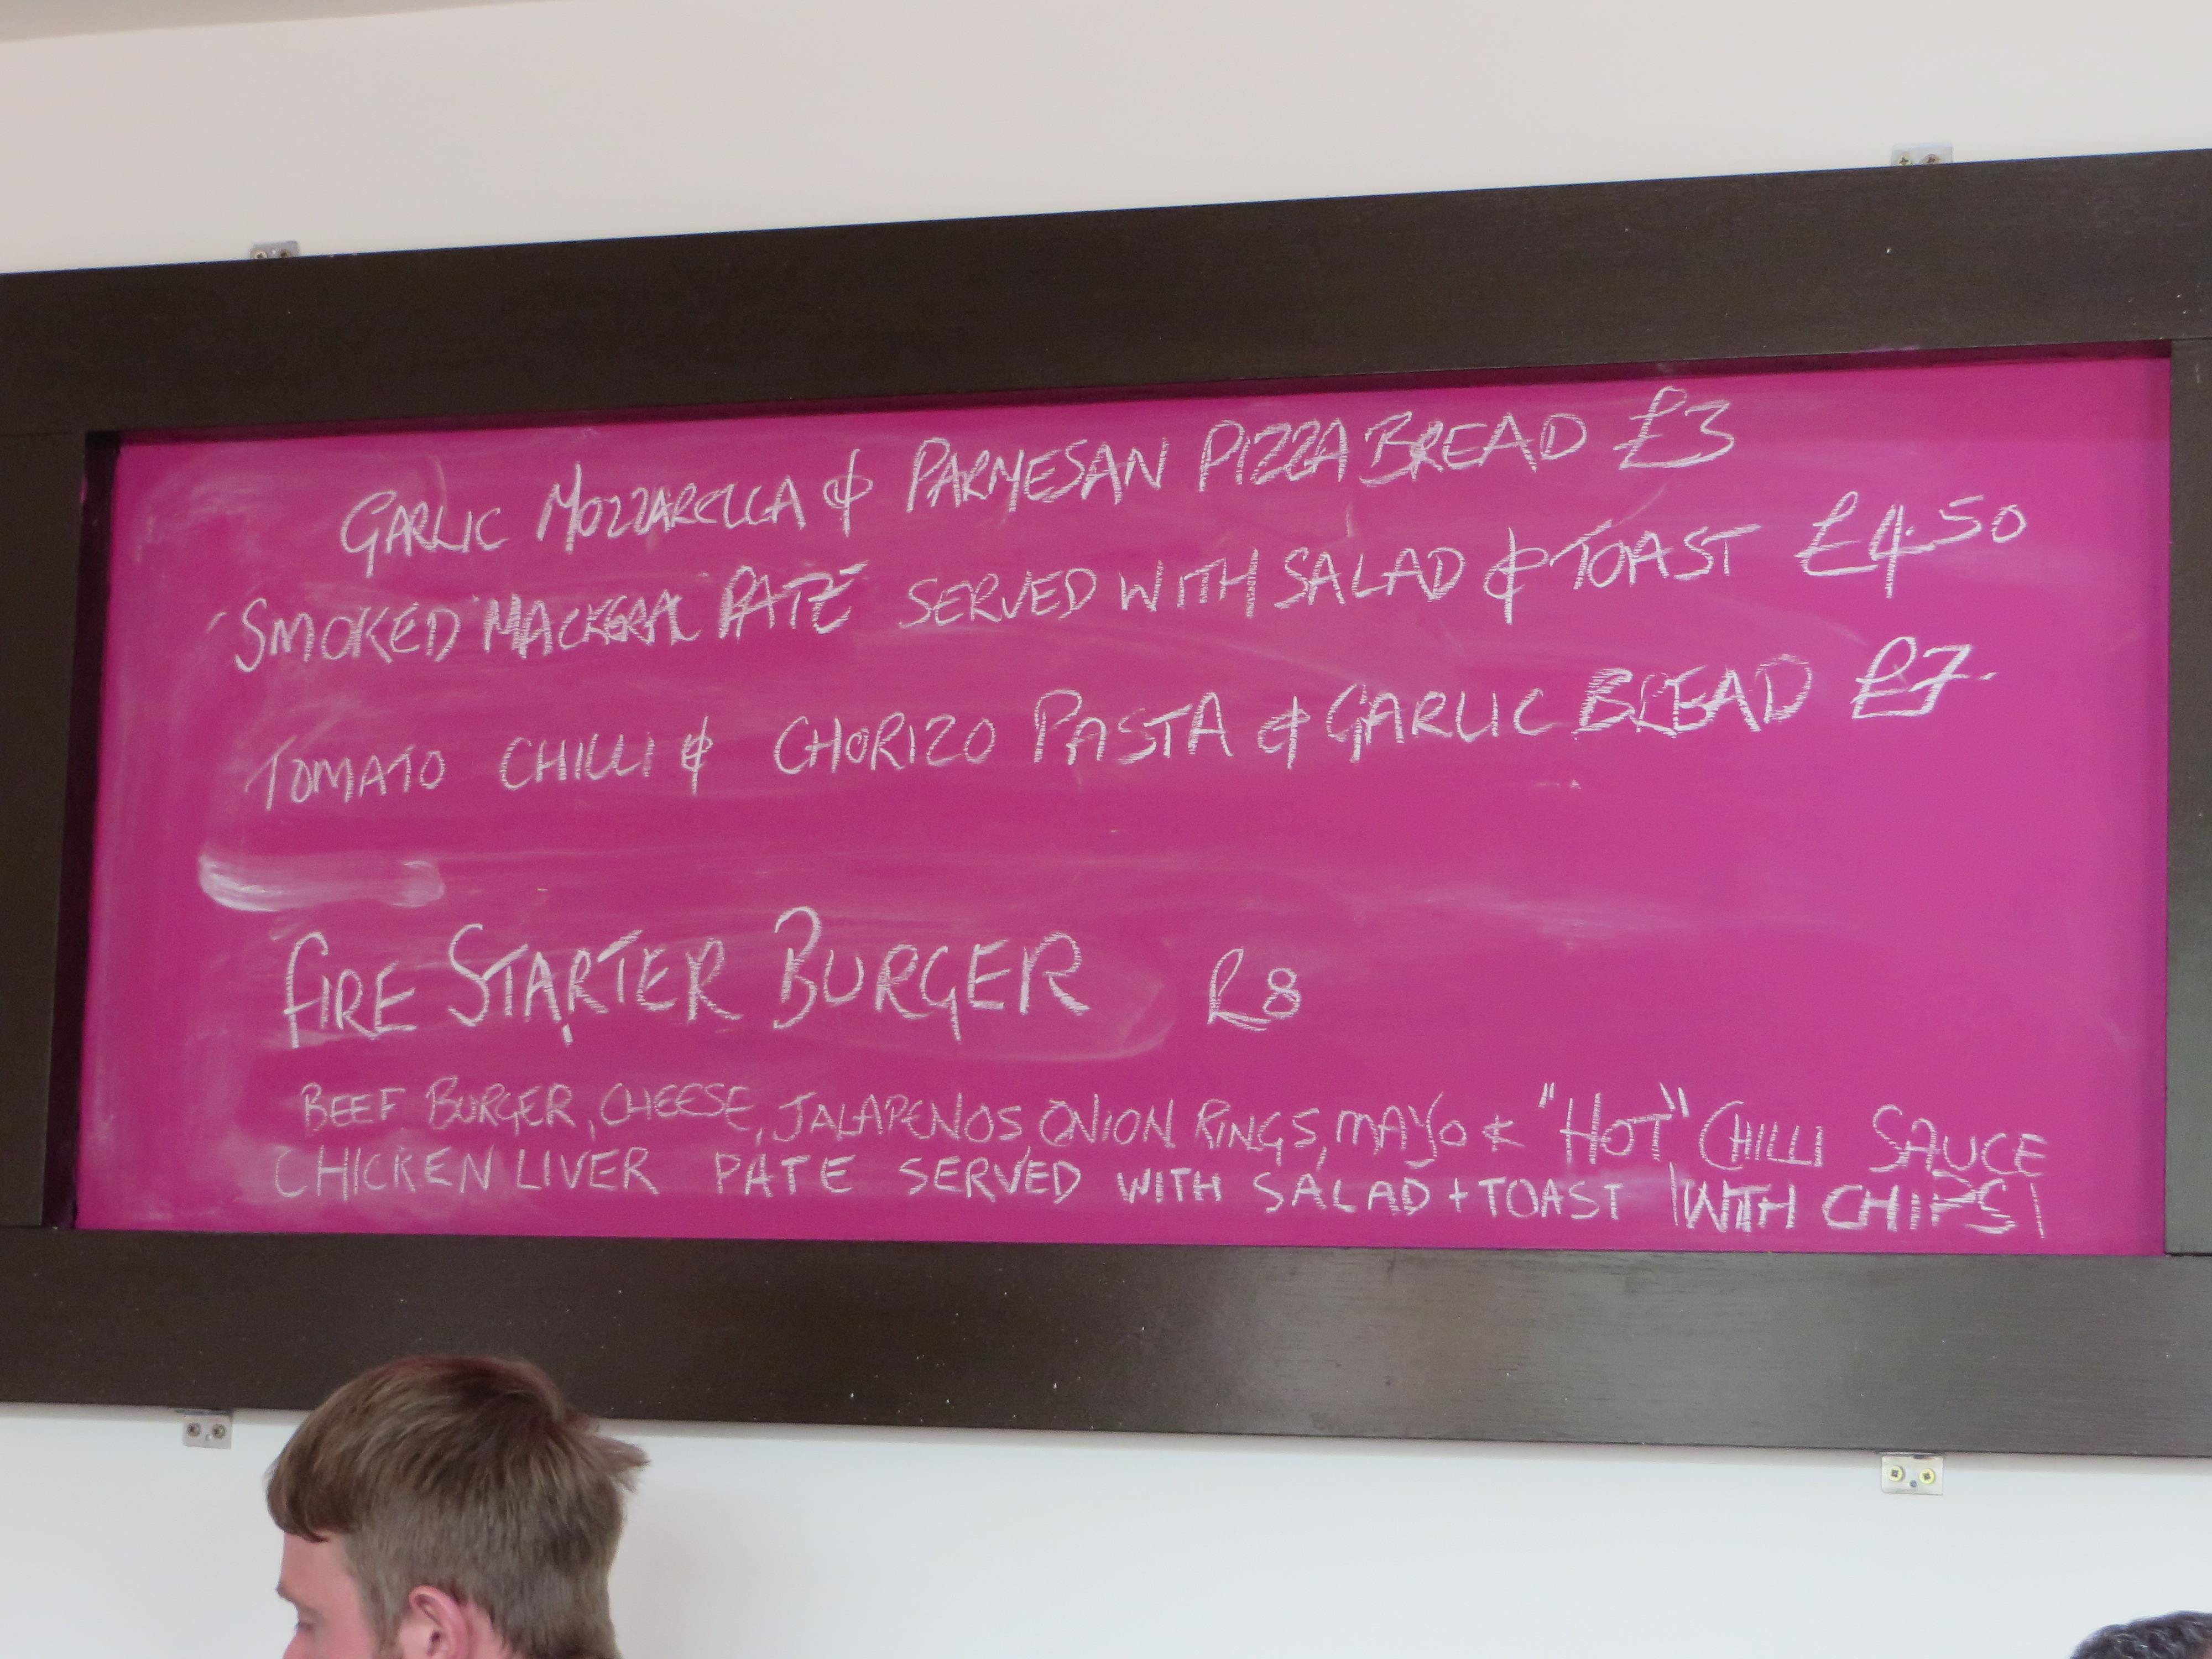 GARLIC MOZZARELLA & PARMESAN PIZZA BREAD £3
SMOKED MACKERAL PATE SERVED WITH SALAD & TOAST £4.50
TOMATO CHILLI & CHORIZO PASTA & GARLIC BREAD £7.
FIRE STARTER BURGER £8
BEEF BURGER, CHEESE, JALAPENOS ONION RINGS, MAYO & "HOT" CHILLI SAUCE
CHICKEN LIVER PATE SERVED WITH SALAD + TOAST | WITH CHIPS |